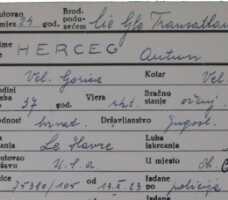 utovao
mjesec 24 god. Brod. podu- zećem Cie Gle Transatlan
ime HERCEG Antun
Vel. Gorica Kotar Vel.
dini
be 37 god. Vjera rkt. Bračno stanje oženj.
dnost hrvat. Državljanstvo Jugosl.
Le Havre Luka
utovao U.S.a U mjesto
dice 75390/105 od 13. II 23 Izdane po policije